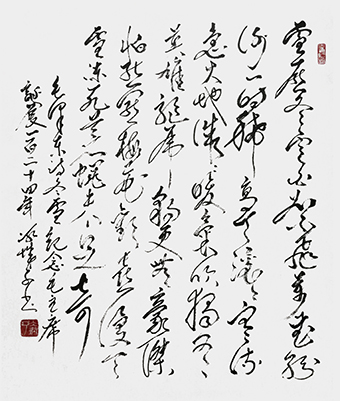 雪压冬云白絮飞万花纷
谢一时稀高天滚滚寒流
急大地微微暖气吹独有
英雄驱虎豹更无豪杰
怕熊罴梅花欢喜漫天
雪冻死苍蝇未足奇
毛泽东诗冬云纪念毛主席
诞辰一百二十四年 书